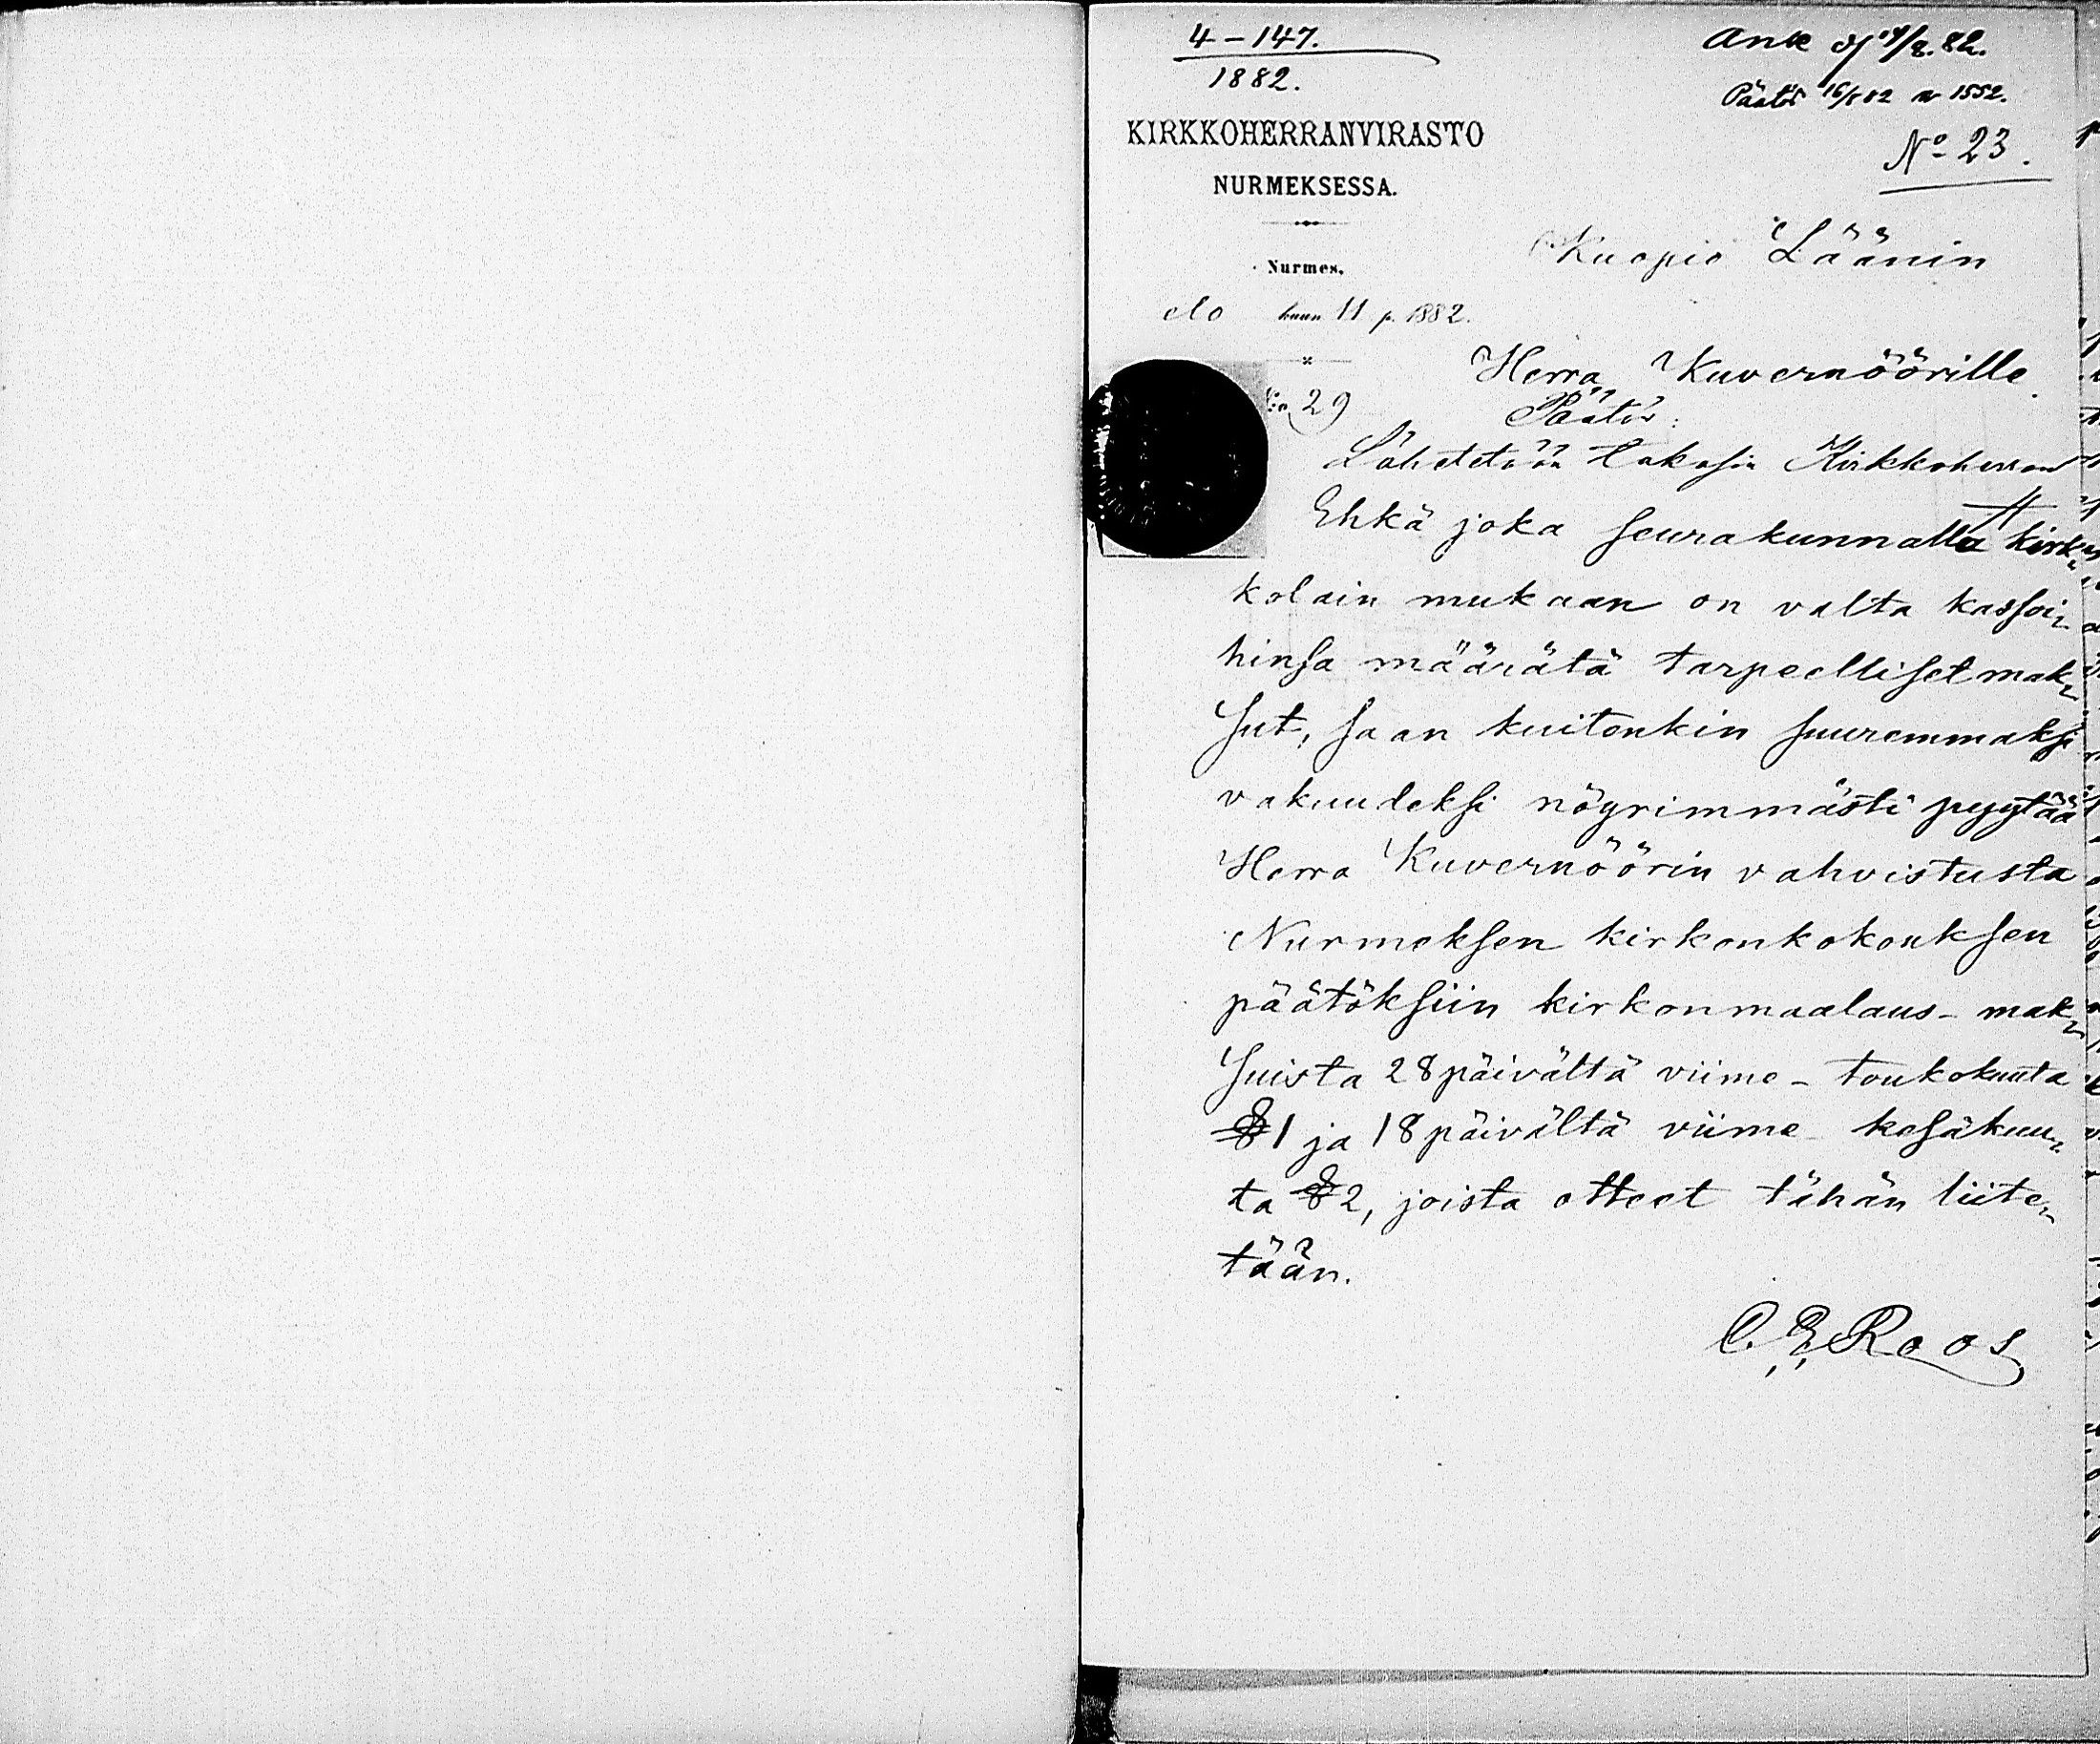 4-147.
1882.
Ank 14/8.82.
Päätös 16/8 82 nr 1552.
No 23.
KIRKKOHERRANVIRASTO
NURMEKSESSA.
Nurmes,
elo kuun 11 p. 1882.
N:o 29
Kuopio Läänin
Herra Kuvernöörille
Päätös:
Lähetetään takasin Kirkkoherran
Ehkä joka seurakunnalla kirk„
kolain mukaan on valta kassoi„
hinsa määrätä tarpeelliset mak„
sut, saan kuitenkin suuremmaksi
vakuudeksi nöyrimmästi pyytää
Herra Kuvernöörin vahvistusta
Nurmeksen kirkonkokouksen
päätöksiin kirkonmaalaus-mak„
suista 28 päivältä viime-toukokuuta
§ 1 ja 18 päivältä viime kesäkuu„
ta § 2, joista otteet tähän liite„
tään.
C. E. Roos